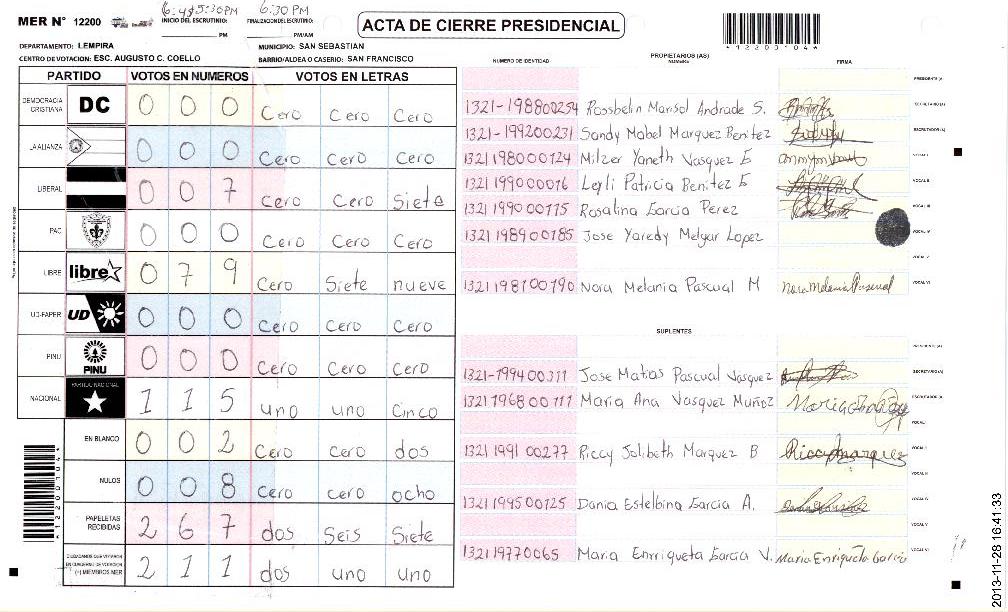 MER N° 12200
6:45 5:30PM 6:30 PM
INICIO DEL ESCRUTINIO: FINALIZACION DEL ESCRUTINIO:
PM PM/AM
ACTA DE CIERRE PRESIDENCIAL
*12200104*
DEPARTAMENTO: LEMPIRA MUNICIPIO: SAN SEBASTIAN
CENTRO DE VOTACION: ESC. AUGUSTO C. COELLO BARRIO/ALDEA O CASERIO: SAN FRANCISCO
PARTIDO VOTOS EN NUMEROS VOTOS EN LETRAS
DEMOCRACIA CRISTIANA DC 0 0 0 Cero Cero Cero
LA ALIANZA 0 0 0 Cero Cero Cero
LIBERAL 0 0 7 Cero Cero Siete
PAC 0 0 0 Cero Cero Cero
LIBRE libre 0 7 9 Cero Siete nueve
UD-FAPER UD 0 0 0 Cero Cero Cero
PINU PINU 0 0 0 Cero Cero Cero
NACIONAL PARTIDO NACIONAL 1 1 5 uno uno Cinco
EN BLANCO 0 0 2 Cero Cero dos
NULOS 0 0 8 Cero Cero ocho
PAPELETAS RECIBIDAS 2 6 7 dos Seis Siete
CIUDADANOS QUE VOTARON EN CUADERNO DE VOTACION (+) MIEMBROS MER 2 1 1 dos uno uno
*12200104*
PROPIETARIOS (AS)
NUMERO DE IDENTIDAD NOMBRE FIRMA
PRESIDENTE (A)
1321-198800254 Rossbelin Marisol Andrade S. SECRETARIO (A)
1321-199200231 Sandy Mabel Marquez Benitez ESCRUTADOR (A)
1321 198000124 Milzer Yaneth Vasquez B VOCAL I
1321 199000016 Leyli Patricia Benitez B VOCAL II
1321 199000775 Rosalina Garcia Perez VOCAL III
1321 198900785 Jose Yaredy Melgar Lopez VOCAL IV
VOCAL V
1321 198100190 Nora Melania Pascual M Nora Melania Pascual VOCAL VI
SUPLENTES
PRESIDENTE (A)
1321-199400311 Jose Matias Pascual Vasquez SECRETARIO (A)
1321 196800111 Maria Ana Vasquez Muñoz ESCRUTADOR (A)
VOCAL I
1321 1991 00277 Riccy Jolibeth Marquez B Riccy Marquez VOCAL II
VOCAL III
1321 199500125 Dania Estelbina Garcia A. VOCAL IV
VOCAL V
1321 19770065 Maria Enrriqueta Garcia V. Maria Enriqueta Garcia VOCAL VI
2013-11-28 16:41:33